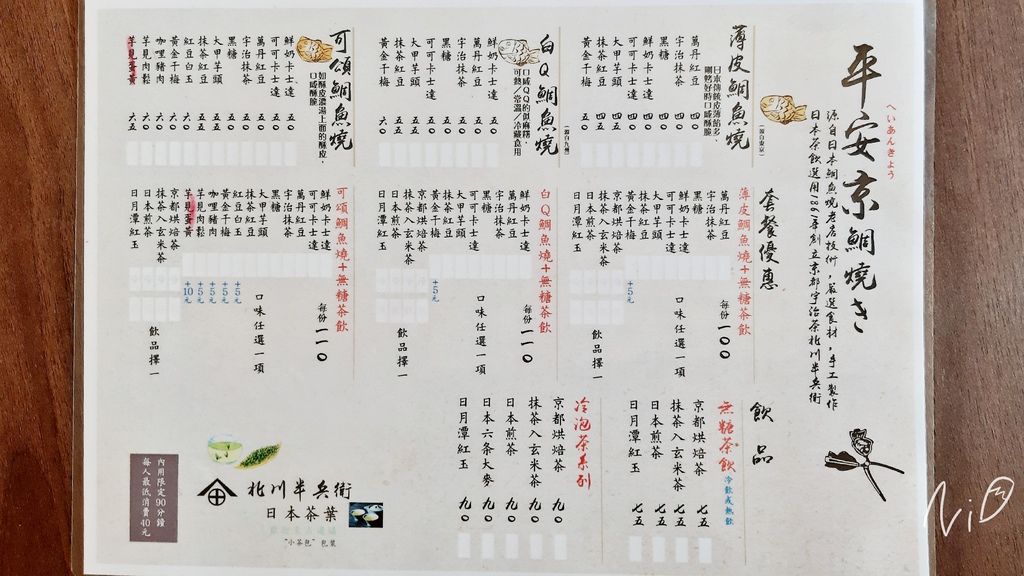 平安京鯛燒き
へいあんきょう
源自日本鯛魚燒老店技術,嚴選食材,手工製作
日本茶飲選用1861年創立京都宇治茶北川半兵衛
薄皮鯛魚燒
(源自東京)
日本傳統皮薄餡多,
剛烤好時口感酥脆
萬丹紅豆 四〇
宇治抹茶 四〇
黑糖 四〇
鮮奶卡士達 四〇
可可卡士達 四〇
大甲芋頭 四五
抹茶紅豆 四五
黃金干梅 五〇
白Q鯛魚燒
(源自九州)
口感QQ的似麻糬,
可熱/常溫/冷藏食用
鮮奶卡士達 五〇
萬丹紅豆 五〇
宇治抹茶 五〇
黑糖 五〇
可可卡士達 五〇
大甲芋頭 五五
抹茶紅豆 五五
黃金干梅 六〇
可頌鯛魚燒
如酥皮濃湯上面的酥皮,
口感酥脆
鮮奶卡士達 五〇
可可卡士達 五〇
萬丹紅豆 五〇
宇治抹茶 五〇
黑糖 五〇
大甲芋頭 五五
抹茶紅豆 五五
紅豆白玉 六〇
黃金干梅 六〇
咖哩豬肉 六〇
芋見肉鬆 六〇
芋見蛋黃 六五
套餐優惠
薄皮鯛魚燒+無糖茶飲
每份 一〇〇
萬丹紅豆
宇治抹茶
黑糖
鮮奶卡士達
可可卡士達
大甲芋頭
抹茶紅豆
黃金干梅 +5元
口味任選一項
京都烘焙茶
抹茶入玄米茶
日本煎茶
日月潭紅玉
飲品擇一
白Q鯛魚燒+無糖茶飲
每份 一一〇
鮮奶卡士達
萬丹紅豆
宇治抹茶
黑糖
可可卡士達
大甲芋頭
抹茶紅豆
黃金干梅 +5元
口味任選一項
京都烘焙茶
抹茶入玄米茶
日本煎茶
日月潭紅玉
飲品擇一
可頌鯛魚燒+無糖茶飲
每份 一一〇
鮮奶卡士達
可可卡士達
萬丹紅豆
宇治抹茶
黑糖
大甲芋頭
抹茶紅豆
紅豆白玉 +5元
黃金干梅 +5元
咖哩豬肉 +5元
芋見肉鬆 +5元
芋見蛋黃 +10元
口味任選一項
京都烘焙茶
抹茶入玄米茶
日本煎茶
日月潭紅玉
飲品擇一
飲品
無糖茶飲 冷飲或熱飲
京都烘焙茶 七五
抹茶入玄米茶 七五
日本煎茶 七五
日月潭紅玉 七五
冷泡茶系列
京都烘焙茶 九〇
抹茶入玄米茶 九〇
日本煎茶 九〇
日本六条大麥 九〇
日月潭紅玉 九〇
北川半兵衛
日本茶葉
"小茶包"包裝
內用限定90分鐘
每人最低消費40元
NiD